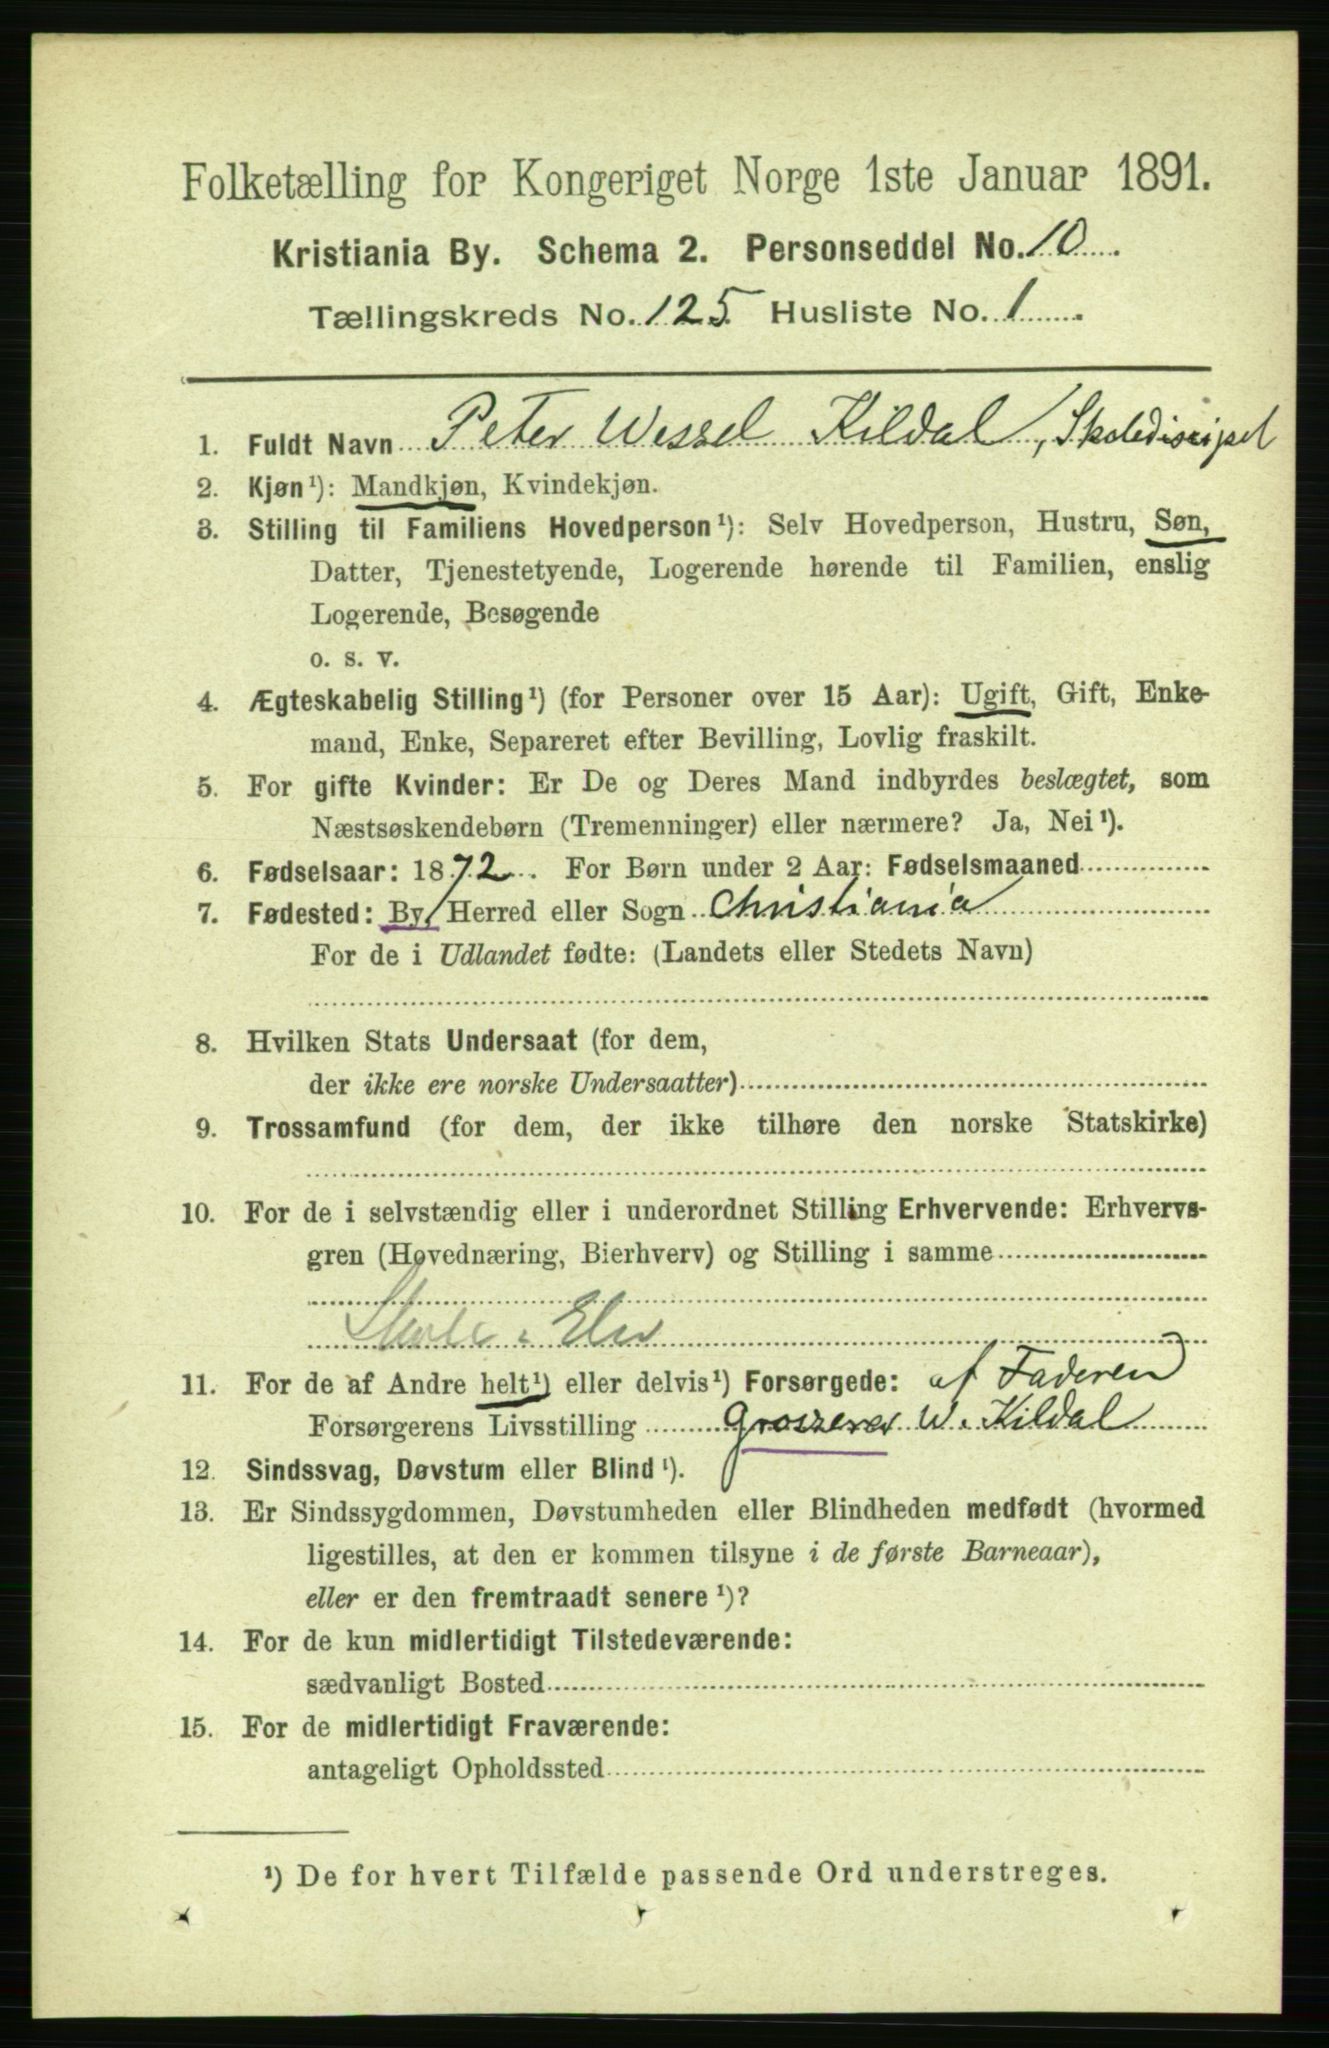 Folketælling for Kongeriget Norge 1ste Januar 1891.
Kristiania By. Schema 2. Personseddel No. 10
Tællingskreds No. 125 Husliste No. 1
1. Fuldt Navn Peter Wessel Kildal, Skolediscipel
2. Kjøn¹): Mandkjøn, Kvindekjøn.
3. Stilling til Familiens Hovedperson¹): Selv Hovedperson, Hustru, Søn,
Datter, Tjenestetyende, Logerende hørende til Familien, enslig
Logerende, Besøgende
o. s. v.
4. Ægteskabelig Stilling¹) (for Personer over 15 Aar): Ugift, Gift, Enke-
mand, Enke, Separeret efter Bevilling, Lovlig fraskilt.
5. For gifte Kvinder: Er De og Deres Mand indbyrdes beslægtet, som
Næstsøskendebørn (Tremenninger) eller nærmere? Ja, Nei¹).
6. Fødselsaar: 1872. For Børn under 2 Aar: Fødselsmaaned
7. Fødested: By, Herred eller Sogn Christiania
For de i Udlandet fødte: (Landets eller Stedets Navn)
8. Hvilken Stats Undersaat (for dem,
der ikke ere norske Undersaatter)
9. Trossamfund (for dem, der ikke tilhøre den norske Statskirke)
10. For de i selvstændig eller i underordnet Stilling Erhvervende: Erhvervs-
gren (Hovednæring, Bierhverv) og Stilling i samme
Skole-Elev
11. For de af Andre helt¹) eller delvis¹) Forsørgede: af Faderen
Forsørgerens Livsstilling Grosserer W. Kildal
12. Sindssvag, Døvstum eller Blind¹).
13. Er Sindssygdommen, Døvstumheden eller Blindheden medfødt (hvormed
ligestilles, at den er kommen tilsyne i de første Barneaar),
eller er den fremtraadt senere¹)?
14. For de kun midlertidigt Tilstedeværende:
sædvanligt Bosted
15. For de midlertidigt Fraværende:
antageligt Opholdssted
¹) De for hvert Tilfælde passende Ord understreges.